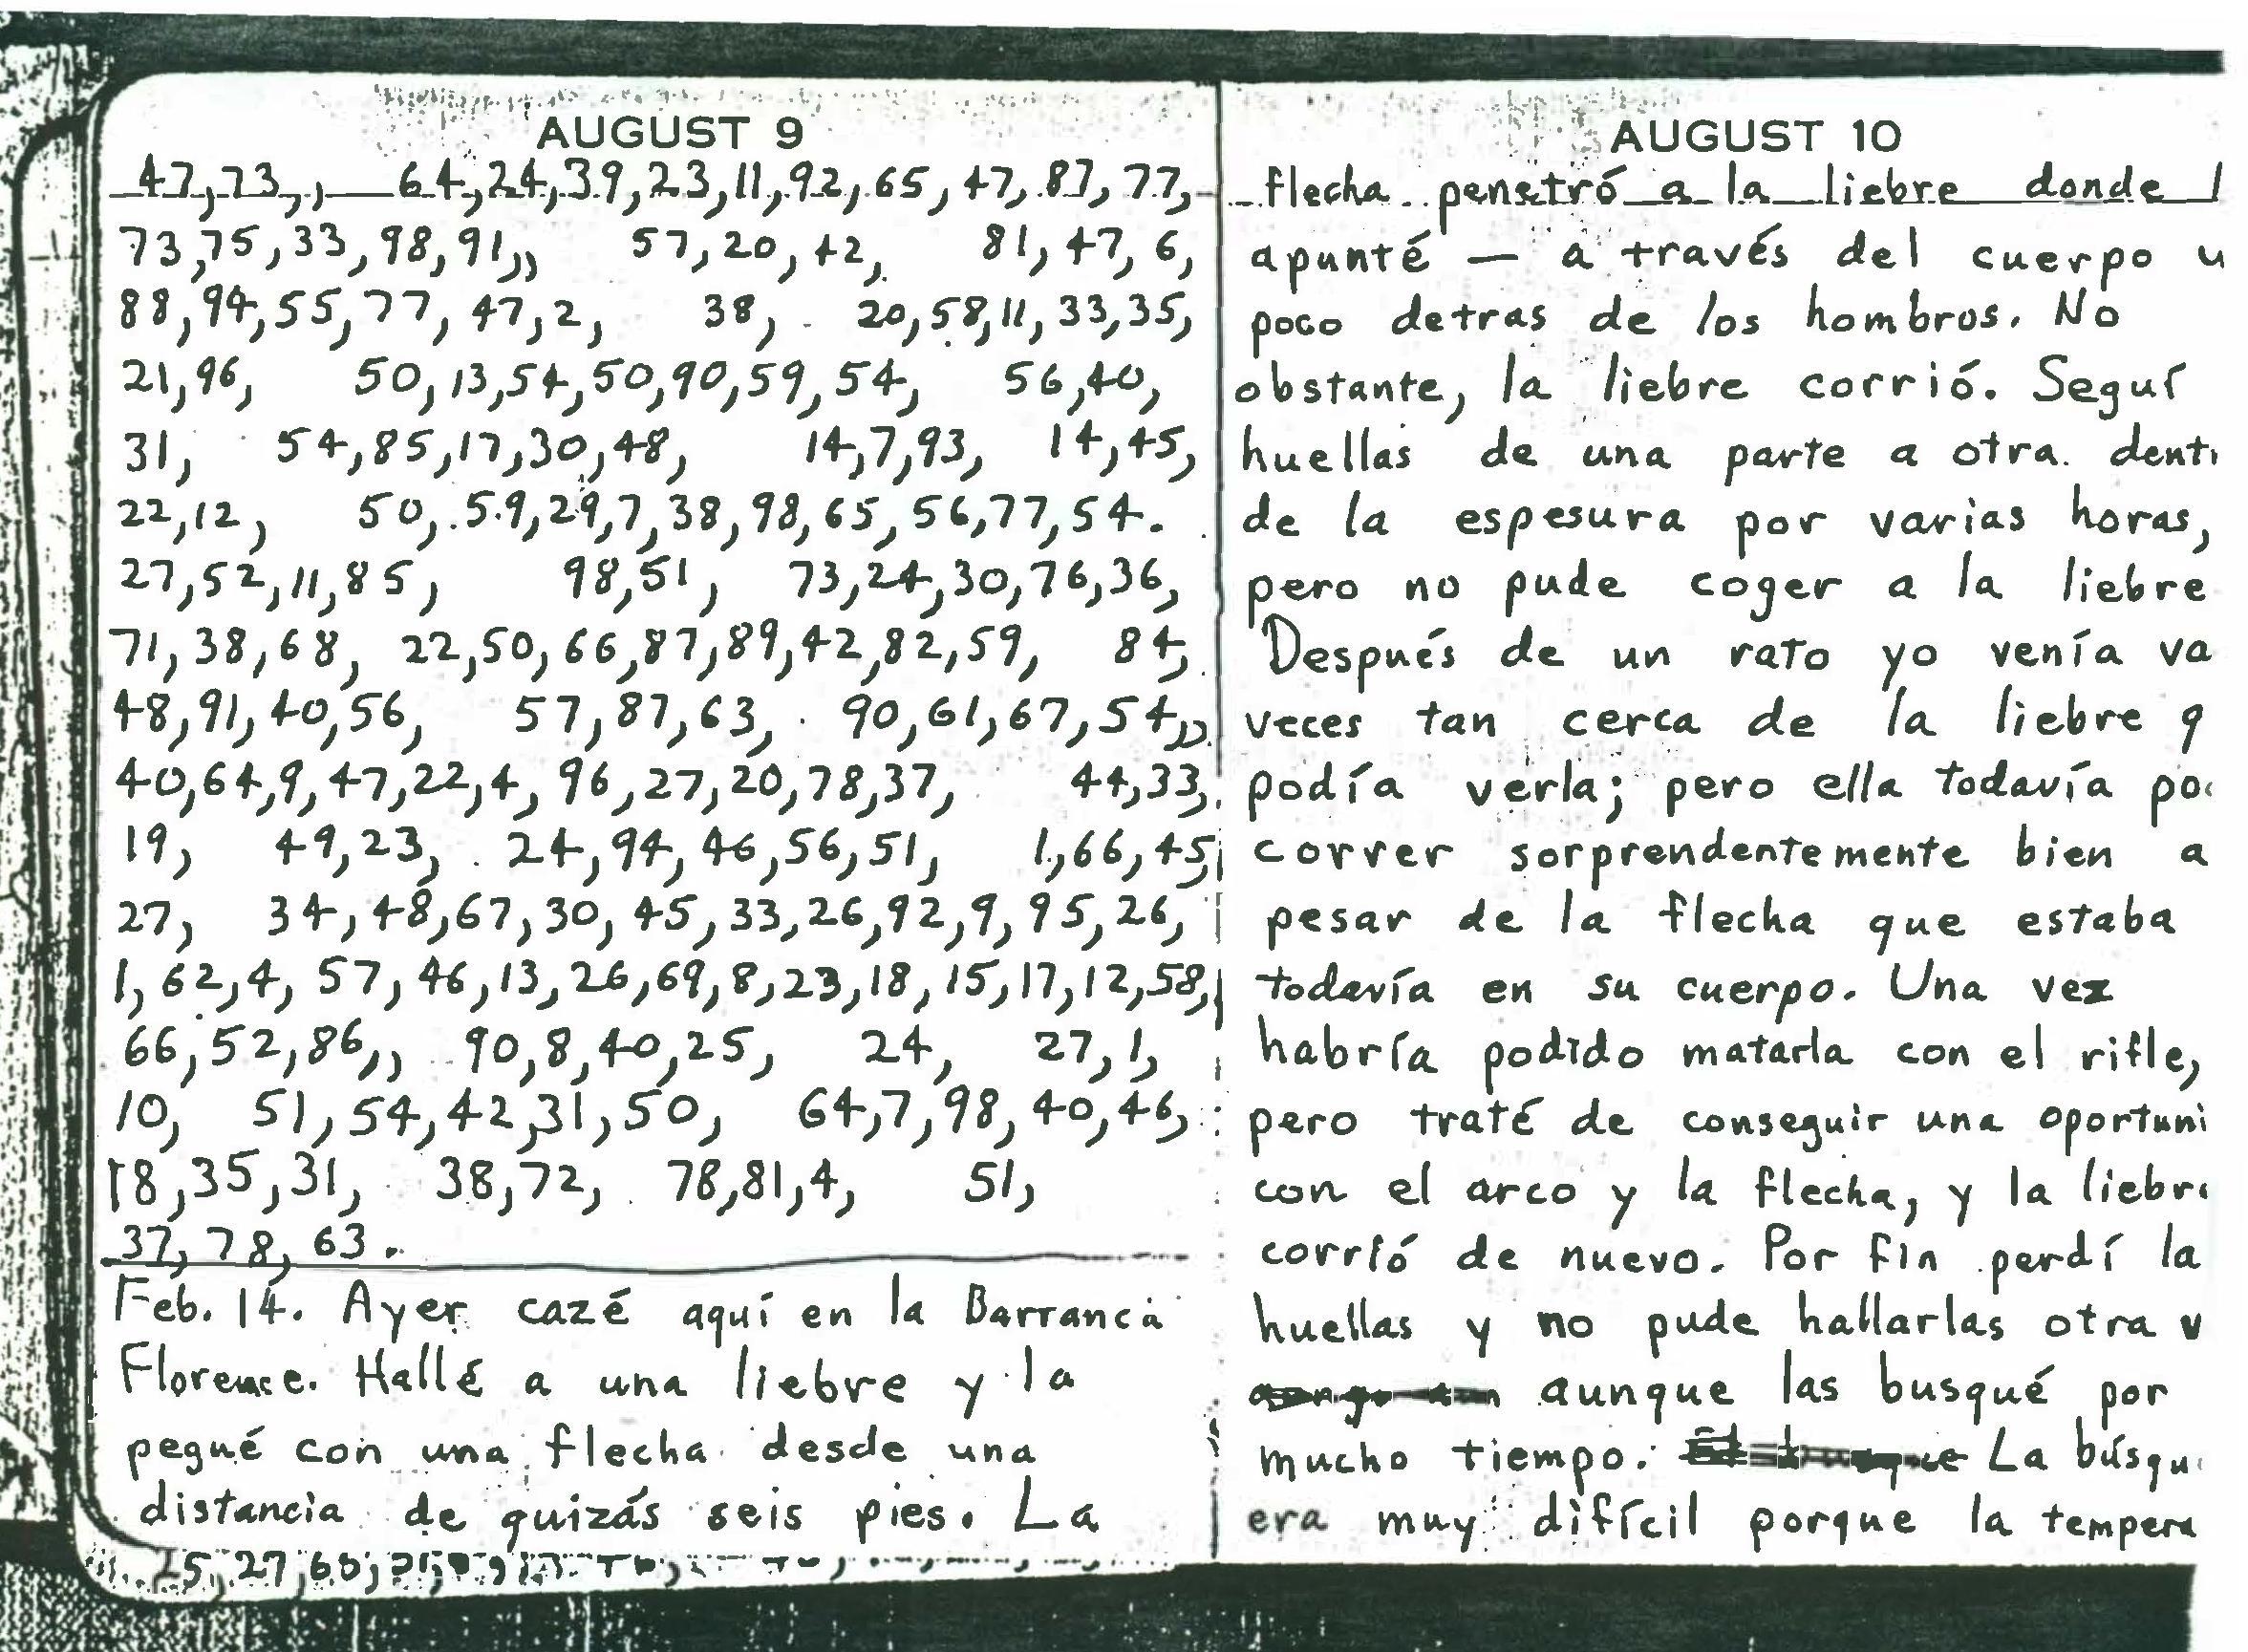 AUGUST 9
47,73,, 64,24,39,23,11,92,65,47,87,77,
73,75,33,98,91,,, 57,20,42, 81,47,6,
88,94,55,77,47,2, 38, 20,58,11,33,35,
21,96, 50,13,54,50,90,59,54, 56,40,
31, 54,85,17,30,48, 14,7,93, 14,45,
22,12, 50,59,29,7,38,98,65,56,77,54.
27,52,11,85, 98,51, 73,24,30,76,36,
71,38,68, 22,50,66,87,89,42,82,59, 84,
48,91,40,56, 57,87,63, 90,61,67,54,,,
40,64,9,47,22,4,96,27,20,78,37, 44,33,
19, 49,23, 24,94,46,56,51, 1,66,45,
27, 34,48,67,30,45,33,26,92,9,95,26,
1,62,4,57,46,13,26,69,8,23,18,15,17,12,58,
66,52,86,, 90,8,40,25, 24, 27,1,
10, 51,54,42,31,50, 64,7,98,40,46,
18,35,31, 38,72, 78,81,4, 51,
37,78,63.
Feb. 14. Ayer cazé aquí en la Barranca
Florence. Hallé a una liebre y la
pegué con una flecha desde una
distancia de quizás seis pies. La
AUGUST 10
flecha penetró a la liebre donde l
apunté — a través del cuerpo u
poco detras de los hombros. No
obstante, la liebre corrió. Seguí
huellas de una parte a otra dent
de la espesura por varias horas,
pero no pude coger a la liebre
Después de un rato yo venía va
veces tan cerca de la liebre q
podía verla; pero ella todavía po
correr sorprendentemente bien a
pesar de la flecha que estaba
todavía en su cuerpo. Una vez
habría podido matarla con el rifle,
pero traté de conseguir una oportuni
con el arco y la flecha, y la liebr
corrió de nuevo. Por fin perdí la
huellas y no pude hallarlas otra v
aunque las busqué por
mucho tiempo. La búsqu
era muy difícil porque la tempera